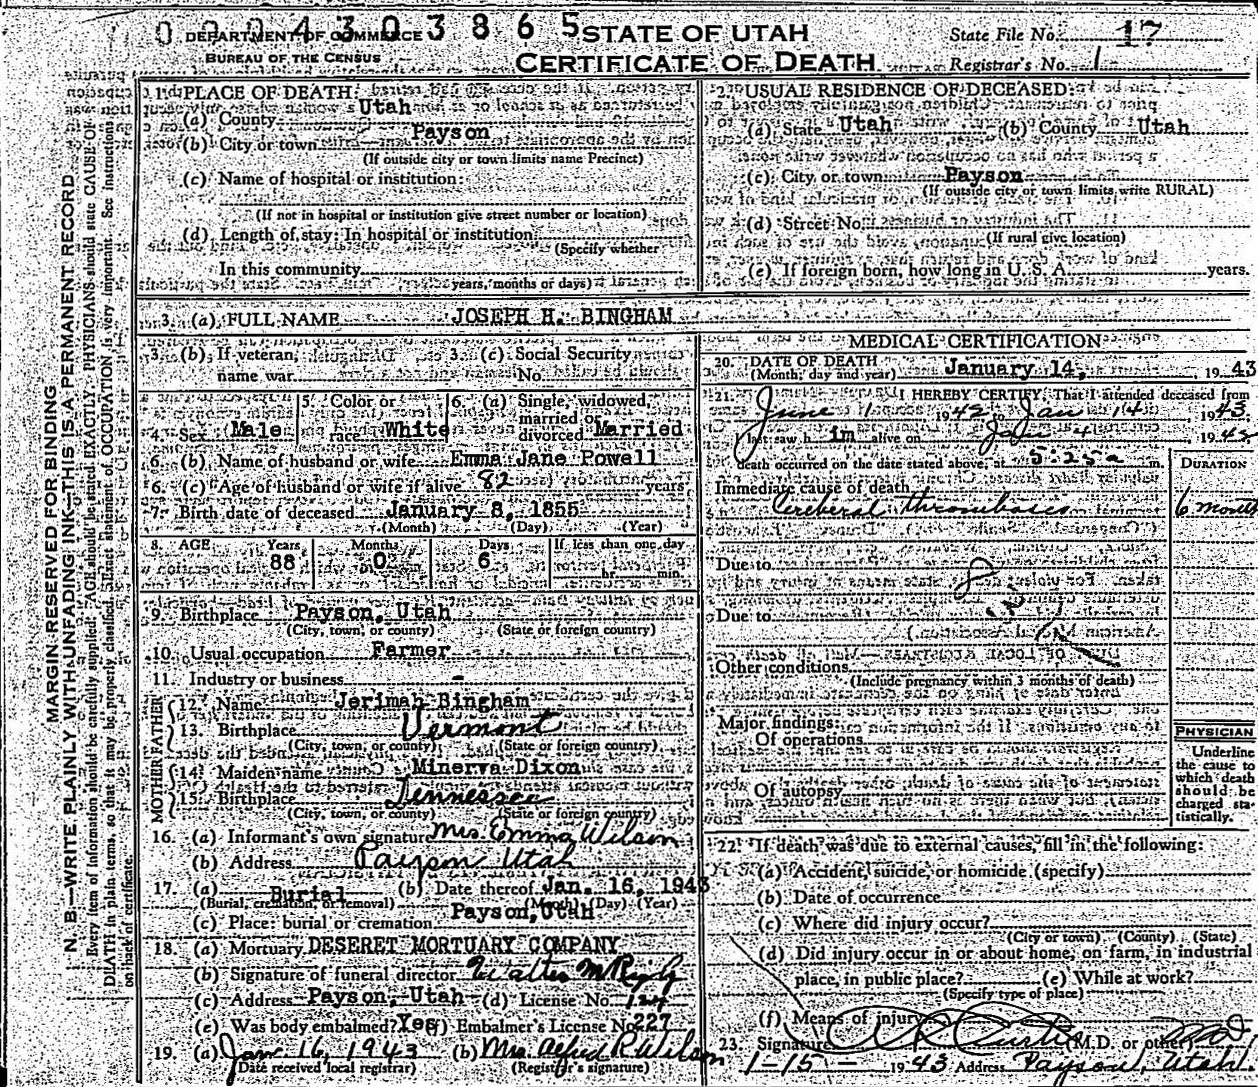 0 0 0 4 3 0 3 8 6 5
DEPARTMENT OF COMMERCE
BUREAU OF THE CENSUS
STATE OF UTAH
CERTIFICATE OF DEATH
State File No. 17
Registrar's No. 1
MARGIN RESERVED FOR BINDING
N. B.—WRITE PLAINLY WITH UNFADING INK—THIS IS A PERMANENT RECORD
Every item of information should be carefully supplied. AGE should be stated EXACTLY. PHYSICIANS should state CAUSE OF
DEATH in plain terms, so that it may be properly classified. Exact statement of OCCUPATION is very important. See instructions
on back of certificate.
1. PLACE OF DEATH:
(a) County Utah
(b) City or town Payson
(If outside city or town limits name Precinct)
(c) Name of hospital or institution:
(If not in hospital or institution give street number or location)
(d) Length of stay: In hospital or institution
(Specify whether
In this community
years, months or days)
2. USUAL RESIDENCE OF DECEASED:
(a) State Utah (b) County Utah
(c) City or town Payson
(If outside city or town limits write RURAL)
(d) Street No.
(If rural give location)
(e) If foreign born, how long in U. S. A. years.
3. (a) FULL NAME JOSEPH H. BINGHAM
3. (b) If veteran, 3. (c) Social Security
name war No.
4. Sex Male 5. Color or race White 6. (a) Single, widowed, married or divorced Married
6. (b) Name of husband or wife Emma Jane Powell
6. (c) Age of husband or wife if alive 82 years
7. Birth date of deceased January 8, 1855
(Month) (Day) (Year)
8. AGE Years Months Days If less than one day
88 0 6 hr. min.
9. Birthplace Payson, Utah
(City, town, or county) (State or foreign country)
10. Usual occupation Farmer
11. Industry or business -
FATHER
12. Name Jerimah Bingham
13. Birthplace Vermont
(City, town, or county) (State or foreign country)
MOTHER
14. Maiden name Minerva Dixon
15. Birthplace Tennessee
(City, town, or county) (State or foreign country)
16. (a) Informant's own signature Mrs. Emma Wilson
(b) Address Payson Utah
17. (a) Burial (b) Date thereof Jan. 16, 1943
(Burial, cremation, or removal) (Month) (Day) (Year)
(c) Place: burial or cremation Payson, Utah
18. (a) Mortuary DESERET MORTUARY COMPANY
(b) Signature of funeral director Walter M Rigby
(c) Address Payson, Utah (d) License No.
(e) Was body embalmed? Yes (f) Embalmer's License No. 227
19. (a) Jan 16, 1943 (b) Mrs. Alfred R Wilson
(Date received local registrar) (Registrar's signature)
MEDICAL CERTIFICATION
20. DATE OF DEATH January 14, 1943
(Month, day and year)
21. I HEREBY CERTIFY, That I attended deceased from
June 1 1942 to Jan 14 1943
last saw him alive on Jan 4 194
death occurred on the date stated above, at 5:25 a m.
DURATION
Immediate cause of death
Cereberal thrombosis 6 month
Due to
Due to
Other conditions
(Include pregnancy within 3 months of death)
Major findings:
Of operations
Of autopsy
PHYSICIAN
Underline
the cause to
which death
should be
charged sta
tistically.
22. If death was due to external causes, fill in the following:
(a) Accident, suicide, or homicide (specify)
(b) Date of occurrence
(c) Where did injury occur?
(City or town) (County) (State)
(d) Did injury occur in or about home, on farm, in industrial
place, in public place? (e) While at work?
(Specify type of place)
(f) Means of injury
23. Signature Curtis (M.D. or other) MD
1-15- 1943 Address Payson, Utah